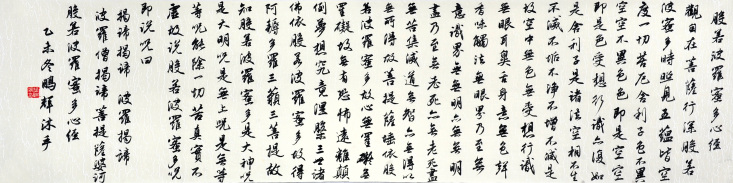 般若波羅蜜多心經
觀自在菩薩行深般若
波羅蜜多時照見五蘊皆空
度一切苦厄舍利子色不異
空空不異色色即是空空
即是色受想行識亦復如
是舍利子是諸法空相不生
不滅不垢不淨不增不減是
故空中無色無受想行識
無眼耳鼻舌身意無色聲
香味觸法無眼界乃至無
意識界無無明亦無無明
盡乃至無老死亦無老死盡
無苦集滅道無智亦無得以
無所得故菩提薩埵依般
若波羅蜜多故心無罣礙無
罣礙故無有恐怖遠離顛
倒夢想究竟涅槃三世諸
佛依般若波羅蜜多故得
阿耨多羅三藐三菩提故
知般若波羅蜜多是大神咒
是大明咒是無上咒是無等
等咒能除一切苦真實不
虛故說般若波羅蜜多咒
即說咒曰
揭諦揭諦 波羅揭諦
波羅僧揭諦菩提薩婆訶
般若波羅蜜多心經
乙未冬鵬輝沐手